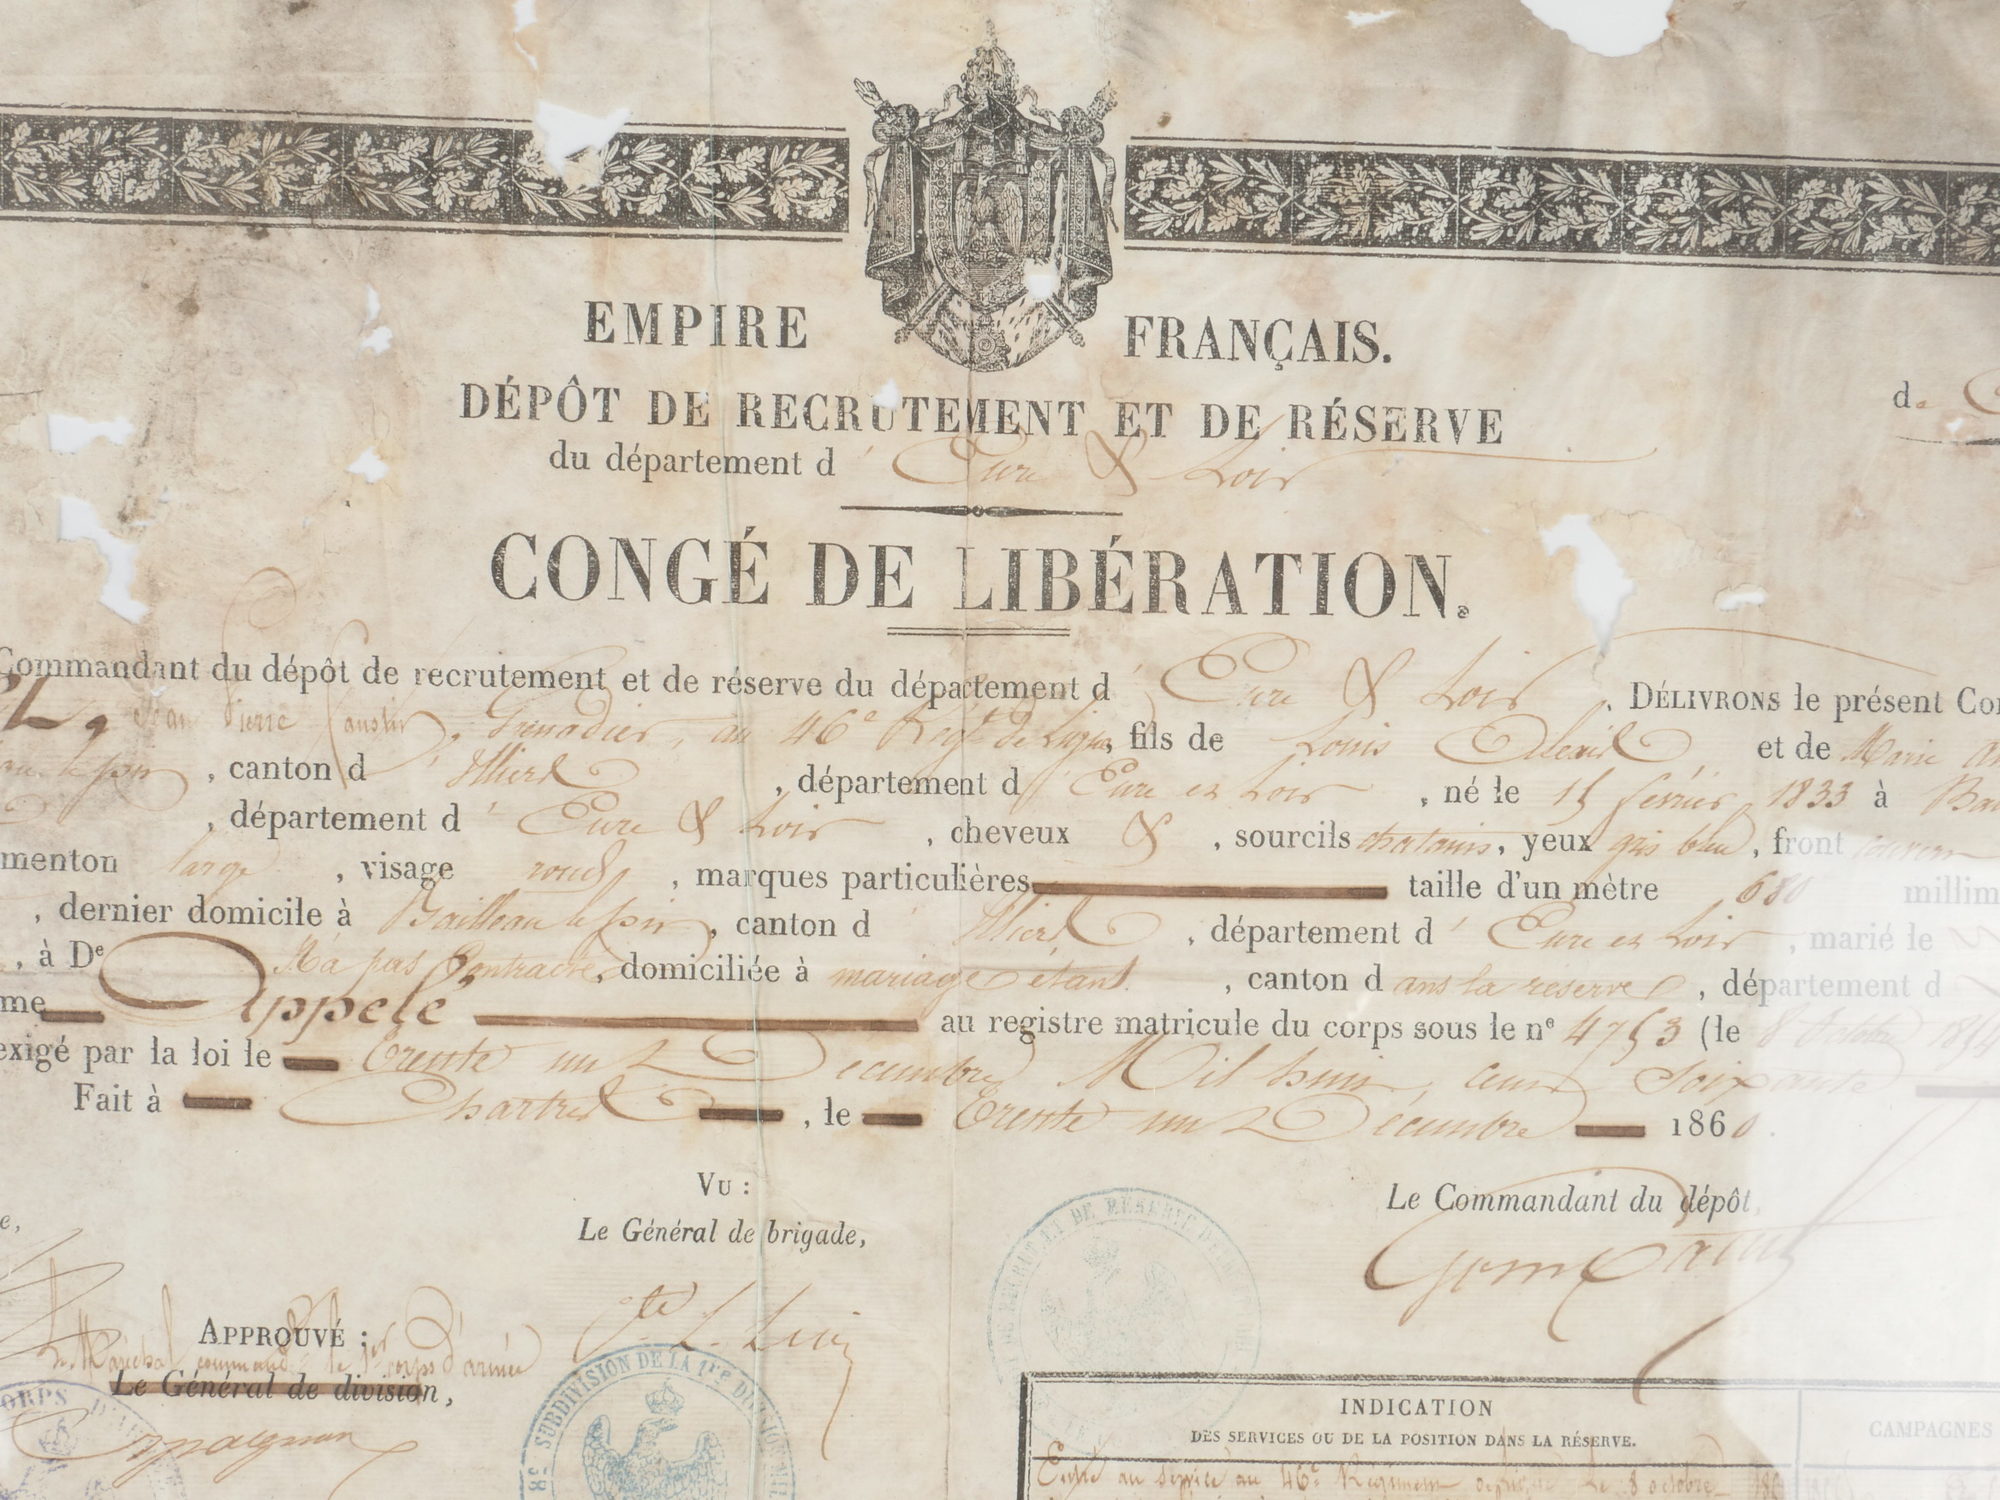 EMPIRE FRANÇAIS.
DÉPÔT DE RECRUTEMENT ET DE RÉSERVE
du département d'Eure & Loir
CONGÉ DE LIBÉRATION.
Commandant du dépôt de recrutement et de réserve du département d'Eure & Loir, DÉLIVRONS le présent
Jean Pierre Faustin, Grenadier, au 46e Régt de Ligne, fils de Louis et de Marie
, canton d'Illiers, département d'Eure et Loir, né le 15 février 1833 à
, département d'Eure & Loir, cheveux &, sourcils chatains, yeux gris bleu, front
menton large, visage rond, marques particulières taille d'un mètre 680
, dernier domicile à Bailleau le pin, canton d'Illiers, département d'Eure et Loir, marié le
, à De N'a pas Contracté, domiciliée à mariage étant, canton dans la réserve, département d
Appelé au registre matricule du corps sous le n° 4753 (le 8 Octobre 1854
exigé par la loi le Trente un Décembre Mil huit cent Soixante
Fait à Chartres, le Trente un Décembre 1860.
VU :
Le Général de brigade,
Le Commandant du dépôt,
APPROUVÉ :
Le Maréchal command. le 1er corps d'armée
Le Général de division,
CORPS
8e SUBDIVISION DE LA 1re DIVISION
ET DE RÉSERVE
INDICATION
DES SERVICES OU DE LA POSITION DANS LA RÉSERVE.
CAMPAGNES
Entré au service au 46e Régiment le 8 octobre